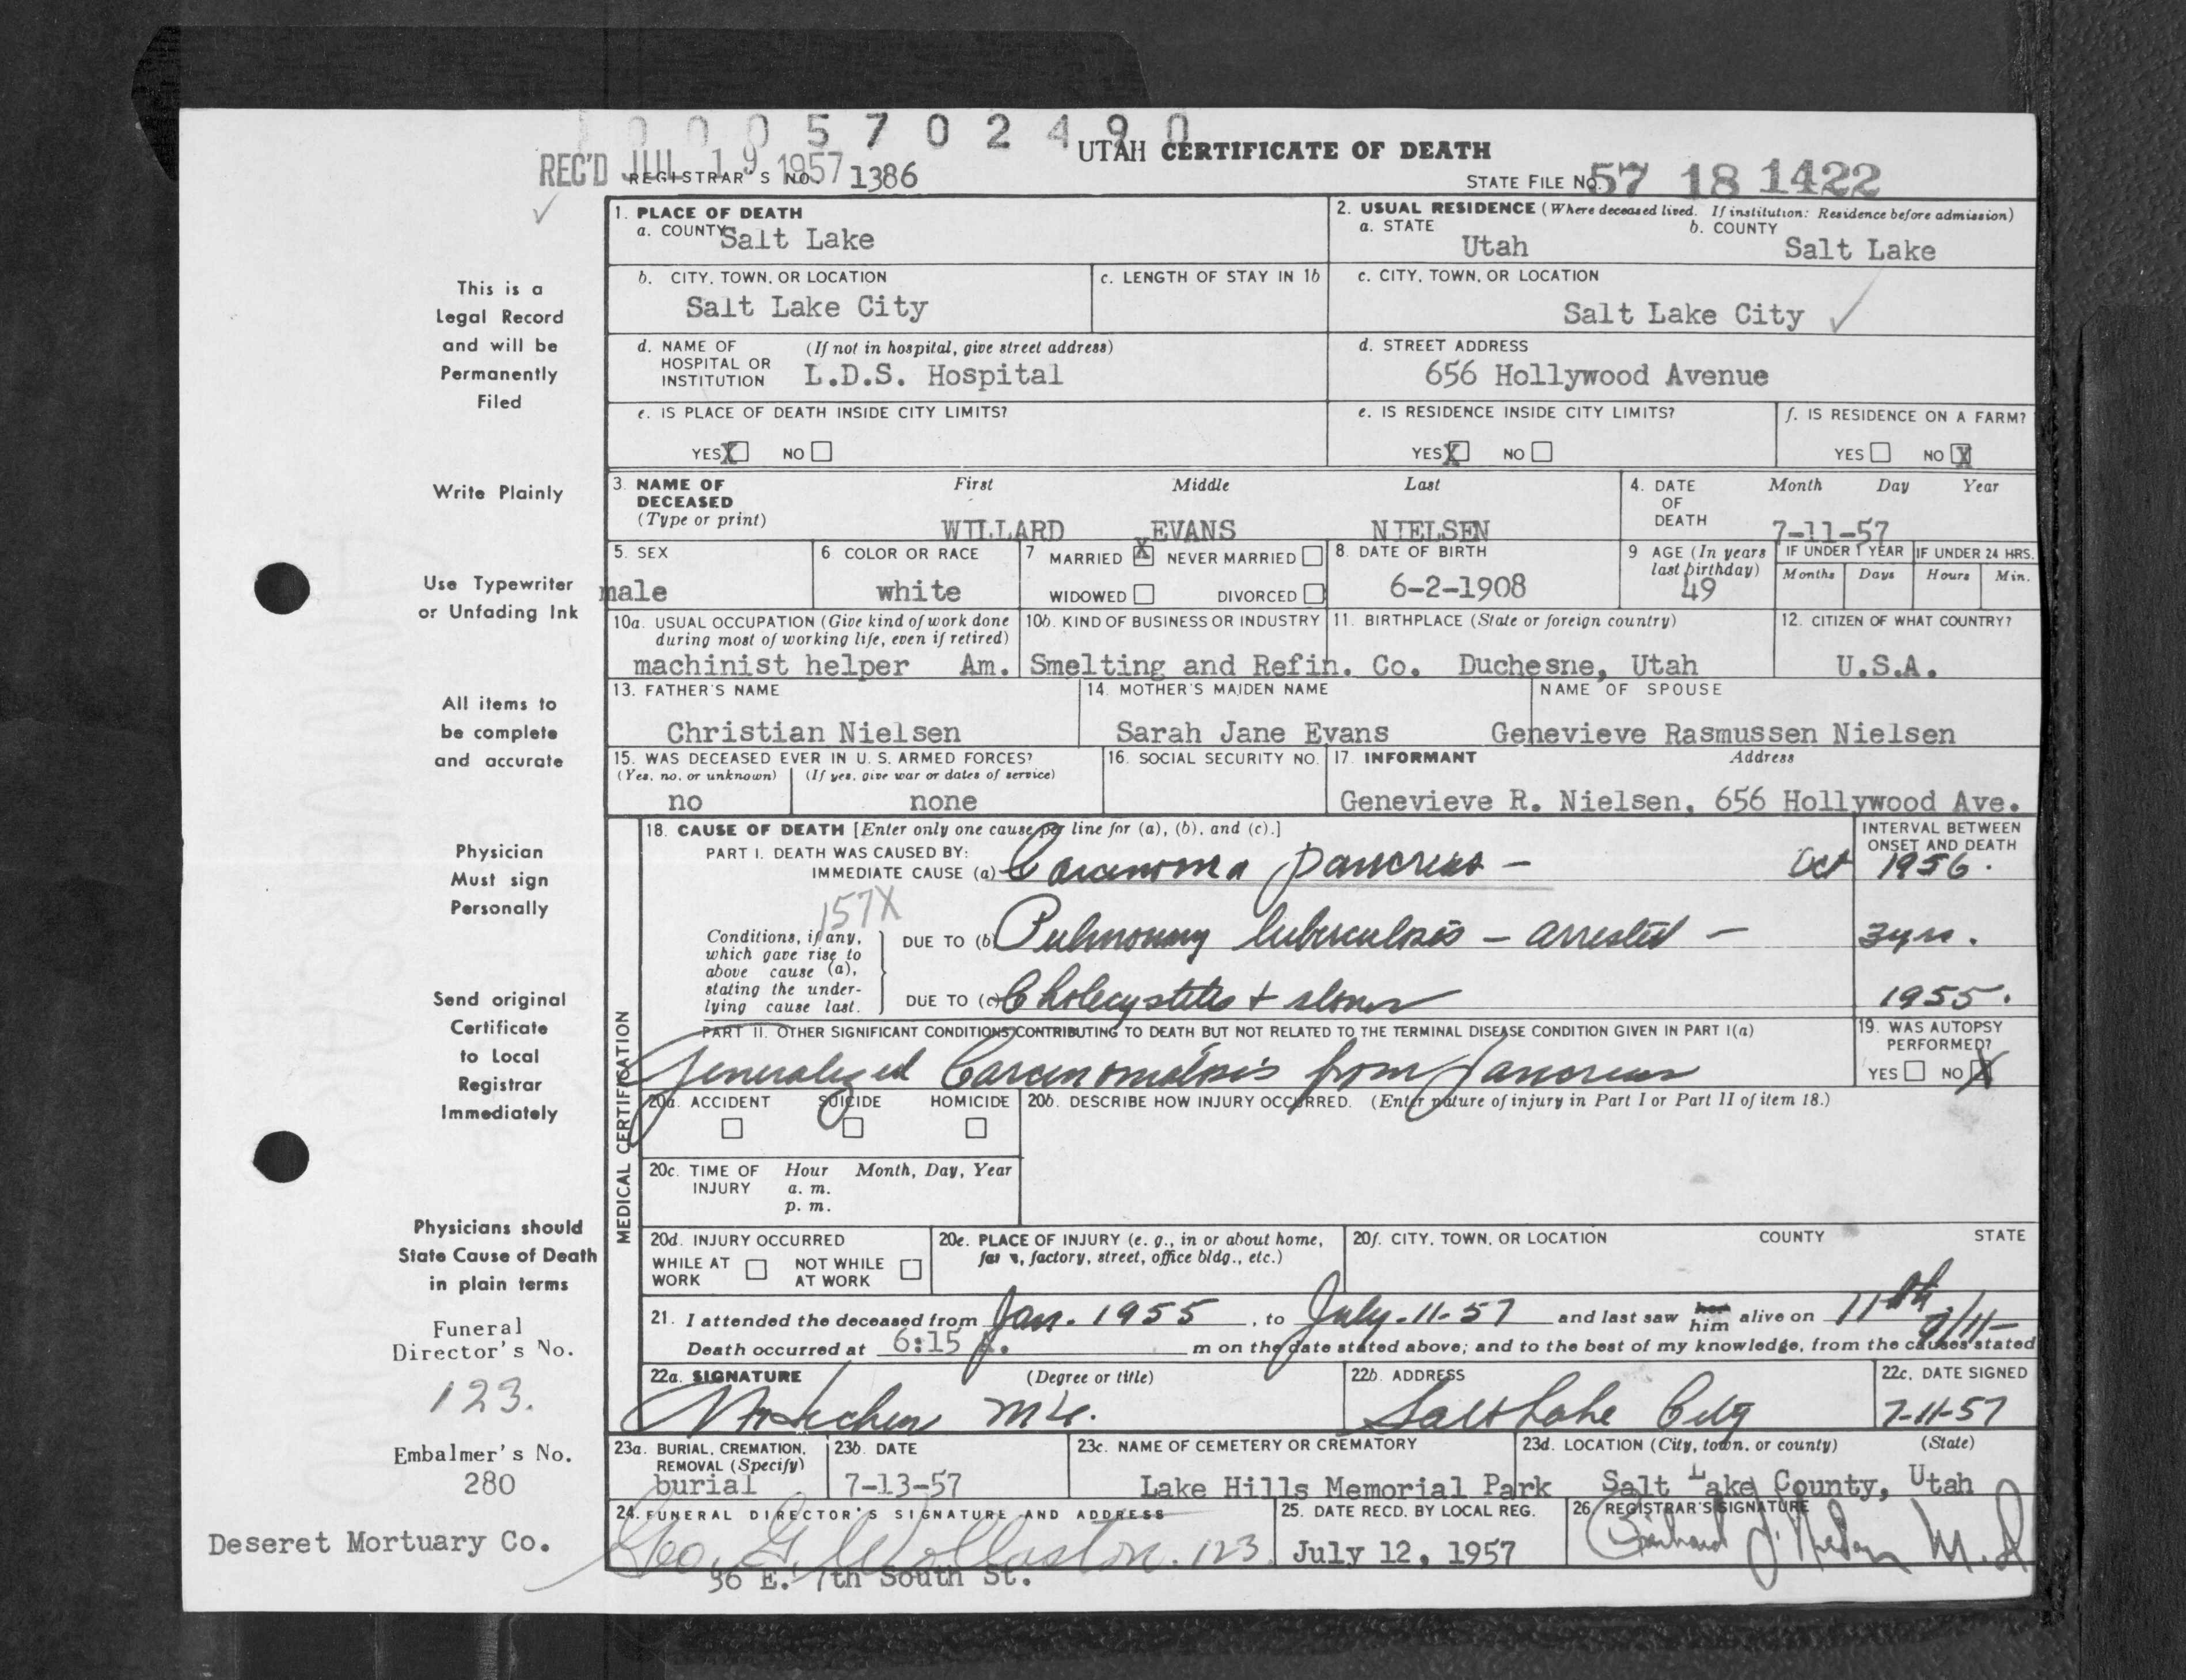 10005702490
REC'D JUL 19 1957
UTAH CERTIFICATE OF DEATH
REGISTRAR'S NO. 1386
STATE FILE NO. 57 18 1422
1. PLACE OF DEATH
a. COUNTY Salt Lake
2. USUAL RESIDENCE (Where deceased lived. If institution: Residence before admission)
a. STATE Utah b. COUNTY Salt Lake
b. CITY, TOWN, OR LOCATION Salt Lake City
c. LENGTH OF STAY IN 1b
c. CITY, TOWN, OR LOCATION Salt Lake City
d. NAME OF HOSPITAL OR INSTITUTION (If not in hospital, give street address) L.D.S. Hospital
d. STREET ADDRESS 656 Hollywood Avenue
e. IS PLACE OF DEATH INSIDE CITY LIMITS?
YES X NO
e. IS RESIDENCE INSIDE CITY LIMITS?
YES X NO
f. IS RESIDENCE ON A FARM?
YES NO X
3. NAME OF DECEASED (Type or print) First Middle Last
WILLARD EVANS NIELSEN
4. DATE OF DEATH Month Day Year
7-11-57
5. SEX male
6. COLOR OR RACE white
7. MARRIED X NEVER MARRIED
WIDOWED DIVORCED
8. DATE OF BIRTH 6-2-1908
9. AGE (In years last birthday) 49
IF UNDER 1 YEAR Months Days
IF UNDER 24 HRS. Hours Min.
10a. USUAL OCCUPATION (Give kind of work done during most of working life, even if retired)
10b. KIND OF BUSINESS OR INDUSTRY
11. BIRTHPLACE (State or foreign country)
12. CITIZEN OF WHAT COUNTRY?
machinist helper Am. Smelting and Refin. Co. Duchesne, Utah U.S.A.
13. FATHER'S NAME
14. MOTHER'S MAIDEN NAME
NAME OF SPOUSE
Christian Nielsen Sarah Jane Evans Genevieve Rasmussen Nielsen
15. WAS DECEASED EVER IN U. S. ARMED FORCES?
(Yes, no, or unknown) (If yes, give war or dates of service)
no none
16. SOCIAL SECURITY NO.
17. INFORMANT Address
Genevieve R. Nielsen, 656 Hollywood Ave.
MEDICAL CERTIFICATION
18. CAUSE OF DEATH [Enter only one cause per line for (a), (b), and (c).]
INTERVAL BETWEEN ONSET AND DEATH
PART I. DEATH WAS CAUSED BY:
IMMEDIATE CAUSE (a) Carcinoma pancreas - Oct 1956.
157X
Conditions, if any, which gave rise to above cause (a), stating the underlying cause last.
DUE TO (b) Pulmonary tuberculosis - arrested - 3 yrs.
DUE TO (c) Cholecystitis + stones 1955.
PART II. OTHER SIGNIFICANT CONDITIONS CONTRIBUTING TO DEATH BUT NOT RELATED TO THE TERMINAL DISEASE CONDITION GIVEN IN PART I(a)
Generalized Carcinomatosis from Pancreas
19. WAS AUTOPSY PERFORMED?
YES NO X
20a. ACCIDENT SUICIDE HOMICIDE
20b. DESCRIBE HOW INJURY OCCURRED. (Enter nature of injury in Part I or Part II of item 18.)
20c. TIME OF INJURY Hour Month, Day, Year
a. m.
p. m.
20d. INJURY OCCURRED
WHILE AT WORK NOT WHILE AT WORK
20e. PLACE OF INJURY (e. g., in or about home, farm, factory, street, office bldg., etc.)
20f. CITY, TOWN, OR LOCATION COUNTY STATE
21. I attended the deceased from Jan. 1955, to July-11-57 and last saw her him alive on 11th 7/11-
Death occurred at 6:15 A. m on the date stated above; and to the best of my knowledge, from the causes stated
22a. SIGNATURE (Degree or title)
22b. ADDRESS
22c. DATE SIGNED
Salt Lake City 7-11-57
23a. BURIAL, CREMATION, REMOVAL (Specify)
23b. DATE
23c. NAME OF CEMETERY OR CREMATORY
23d. LOCATION (City, town, or county) (State)
burial 7-13-57 Lake Hills Memorial Park Salt Lake County, Utah
24. FUNERAL DIRECTOR'S SIGNATURE AND ADDRESS
Geo. G. Wollaston. 123
36 E. 7th South St.
25. DATE RECD. BY LOCAL REG.
July 12, 1957
26. REGISTRAR'S SIGNATURE
M.D
This is a
Legal Record
and will be
Permanently
Filed
Write Plainly
Use Typewriter
or Unfading Ink
All items to
be complete
and accurate
Physician
Must sign
Personally
Send original
Certificate
to Local
Registrar
Immediately
Physicians should
State Cause of Death
in plain terms
Funeral
Director's No.
123.
Embalmer's No.
280
Deseret Mortuary Co.